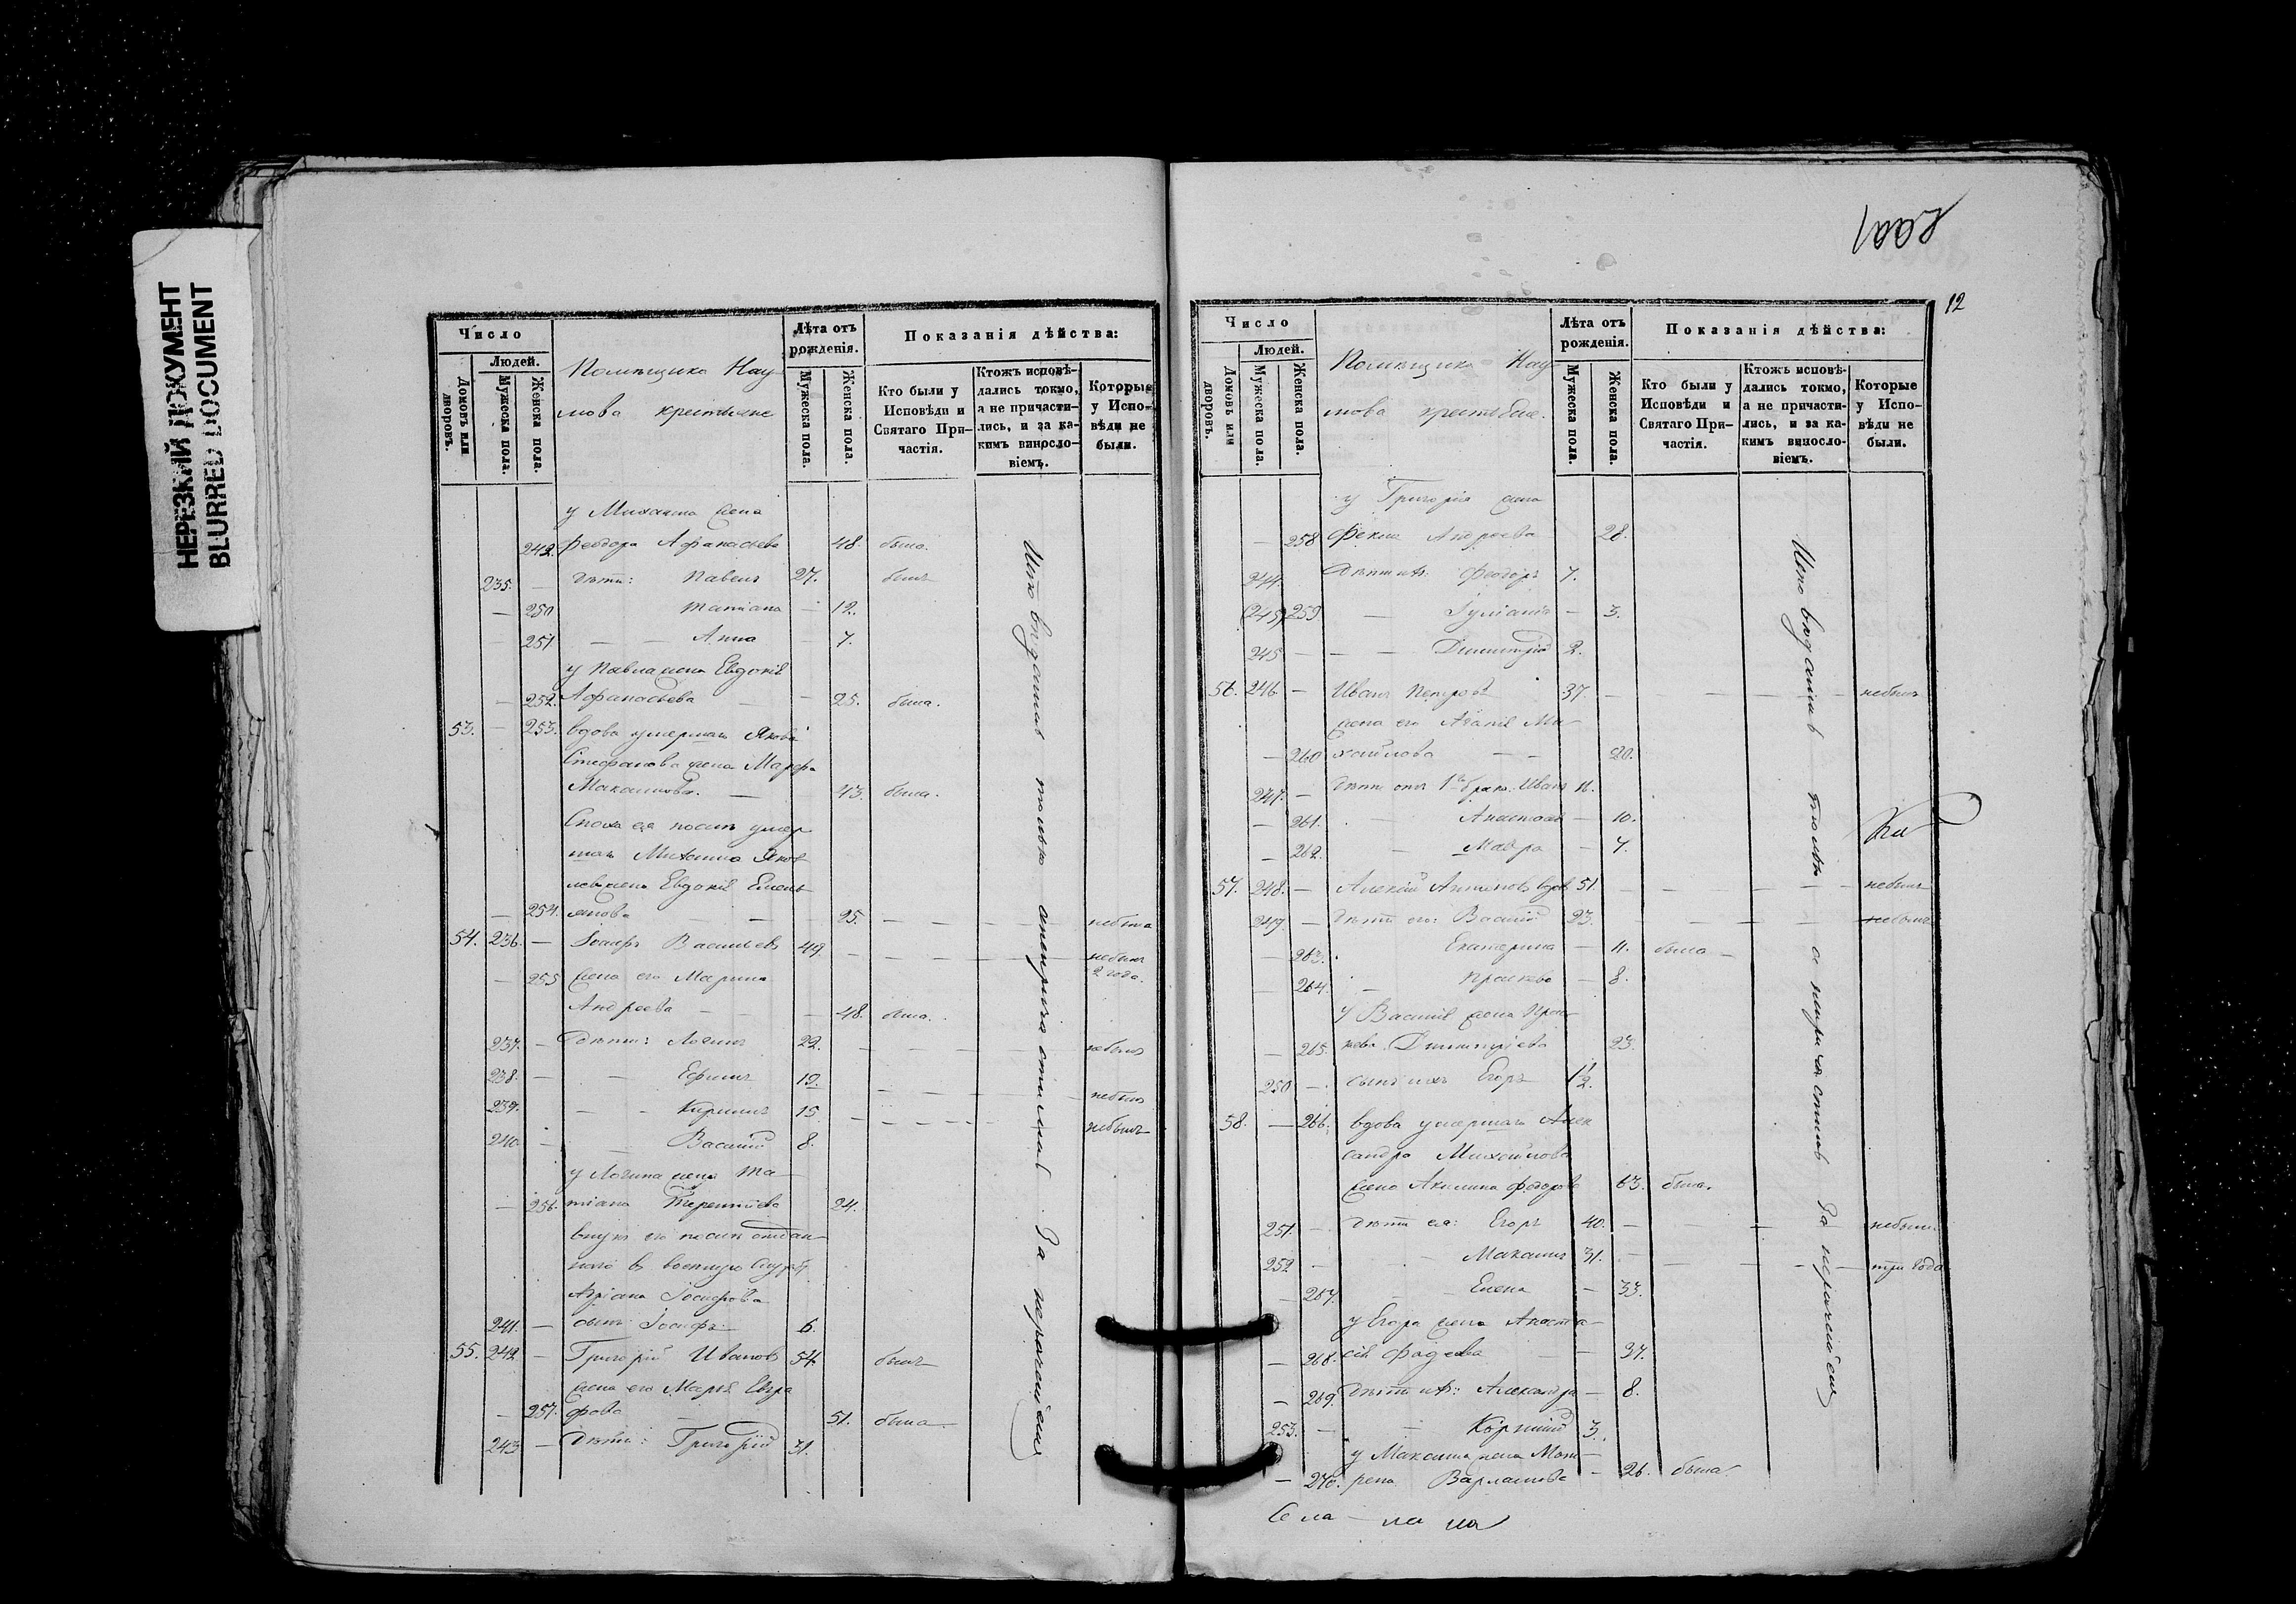 НЕРЕЗКИЙ ДОКУМЕНТ
BLURRED DOCUMENT
Число
Людей.
Домовъ или дворовъ.
Мужеска пола.
Женска пола.
Помѣщика Нау-
мова крестьяне
Лѣта отъ рожденія.
Мужеска пола.
Женска пола.
Показанія дѣйства:
Кто были у Исповѣди и Святаго При-частія.
Ктожъ исповѣ-дались токмо, а не причасти-лись, и за ка-кимъ винosло-віемъ.
Которые у Испо-вѣди не были.
у Михаила жена
249. Феодора Афанасьева 48. была.
235. — дѣти: Павелъ 27. былъ
— 250 Татіана — 12.
— 251. — — Анна — 7.
у Павла жена Евдокія
— 252. Афанасьева — 25. была.
53. — 253. вдова умершаго Якова
Стефанова жена Марфа
Максимова. — 43. была.
Сноха ея послѣ умер
шаго Михаила Яков
лева жена Евдокія Емель
— 254. янова — — 25. — — — небыла
54. 236. — Іосифъ Васильевъ 49. — — — небылъ 2 года.
— 255 жена его Марина
Андреева — — — 48. была.
237. — дѣти: Логинъ 22. — — — небылъ
238. — — Ефимъ 19. — — — небылъ
239. — — Кирилъ 15 — — — небылъ
240. — — Василій 8.
у Логина жена Та—
— 256. тіана Терентіева 24.
внукъ его послѣ отдан
наго въ военную службу
Адріана Іосифова
241. — сынъ Іосифъ 6.
55. 242. — Григорій Ивановъ 54. былъ
жена его Марья Евгра
— 257. фова — 51. была
243 — дѣти: Григорій 31.
Исповѣдались только а непричастились За нерачениемъ
1002
12
Число
Людей.
Домовъ или дворовъ.
Мужеска пола.
Женска пола.
Помѣщика Нау-
мова крестьяне.
Лѣта отъ рожденія.
Мужеска пола.
Женска пола.
Показанія дѣйства:
Кто были у Исповѣди и Святаго При-частія.
Ктожъ исповѣ-дались токмо, а не причасти-лись, и за ка-кимъ винosло-віемъ.
Которые у Испо-вѣди не были.
у Григорія жена
— 258 Фекла Андреева 28.
244. Дѣти ихъ: Феодоръ 7.
(245) 259 — Іуліанія — 3.
245 — — — Димитрій 2.
56. 246. — Иванъ Петровъ 37. — — — небылъ
жена его Агафія Ми—
— 260 хайлова — — 20.
247. — дѣти отъ 1го брака: Иванъ 11.
— 261. — Анастасія — 10.
— 262. — Мавра — 7.
57. 248. — Алексѣй Антиповъ вдов 51. — — — небылъ
249. — дѣти его: Василій 23. — — — небылъ
— 263. Екатерина — 11. была
— 264. — Праскева — 8.
у Василія жена Прас
— 265. кева Димитріева 23.
250 — сынъ ихъ Егоръ 1/2.
58. — 266. вдова умершаго Алек
сандра Михайлова
жена Акилина Федорова 63. была.
251. — дѣти ея: Егоръ 40. — — — небыли
252 — — Максимъ 31. — — — три года
— 267. — Елена — 33.
у Егора жена Анаста—
— 268. сія Фадеева — — 37.
— 269. дѣти ихъ: Александра — 8.
253. — — Корнилій 3.
у Максима жена Мат—
— 270. рена Варламова — 26. была.
Исповѣдались только а непричастились За нерачениемъ